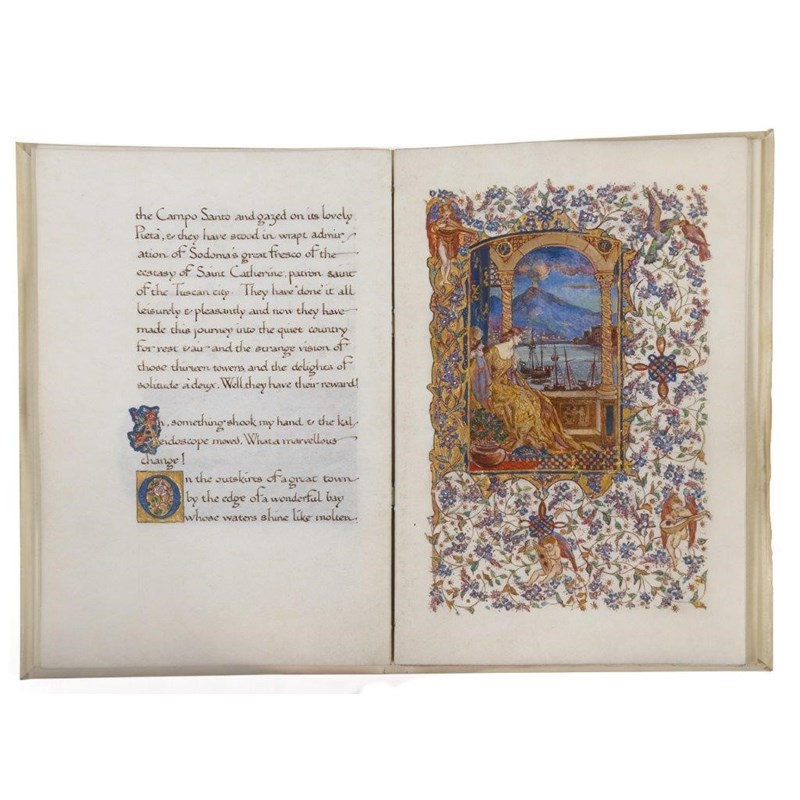 the Campo Santo and gazed on its lovely
Pietà, & they have stood in wrapt admir
ation of Sodoma's great fresco of the
ecstasy of Saint Catherine, patron saint
of the Tuscan city. They have "done" it all
leisurely & pleasantly and now they have
made this journey into the quiet country
for rest & air and the strange vision of
those thirteen towers, and the delights of
solitude à deux. Well, they have their reward!
Ah, something shook my hand & the kal
eidoscope moves. What a marvellous
change!
On the outskirts of a great town
by the edge of a wonderful bay
whose waters shine like molten